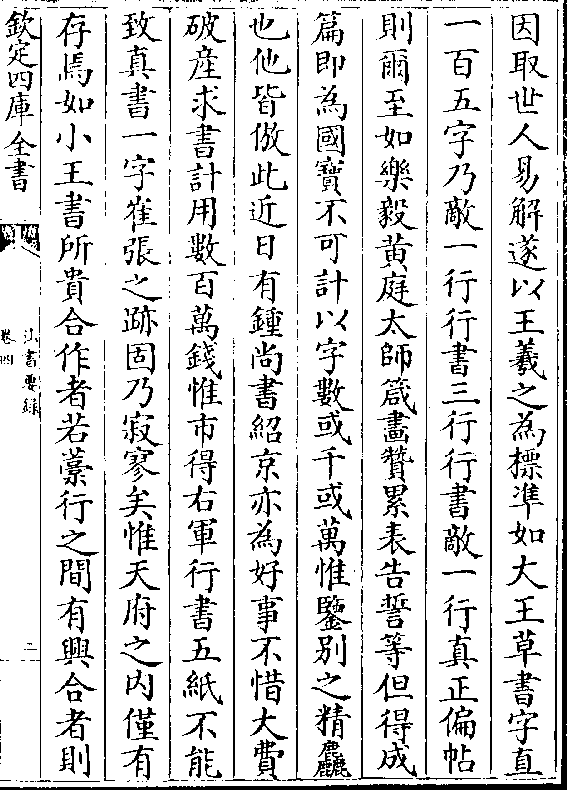 因取世人易解遂以王羲之為標準如大王草書字直
一百五字乃敵一行行書三行行書敵一行真正偏帖
則爾至如樂毅黄庭太師箴畫贊累表告誓等但得成
篇即為國寶不可計以字數或千或萬惟鑒别之精麤
也他皆倣此近日有鍾尚書紹京亦為好事不惜大費
破産求書計用數百萬錢惟市得右軍行書五紙不能
致真書一字崔張之跡固乃寂寥矣惟天府之内僅有
存焉如小王書所貴合作者若藁行之間有興合者則
欽定四庫全書
卷四
書要錄
二